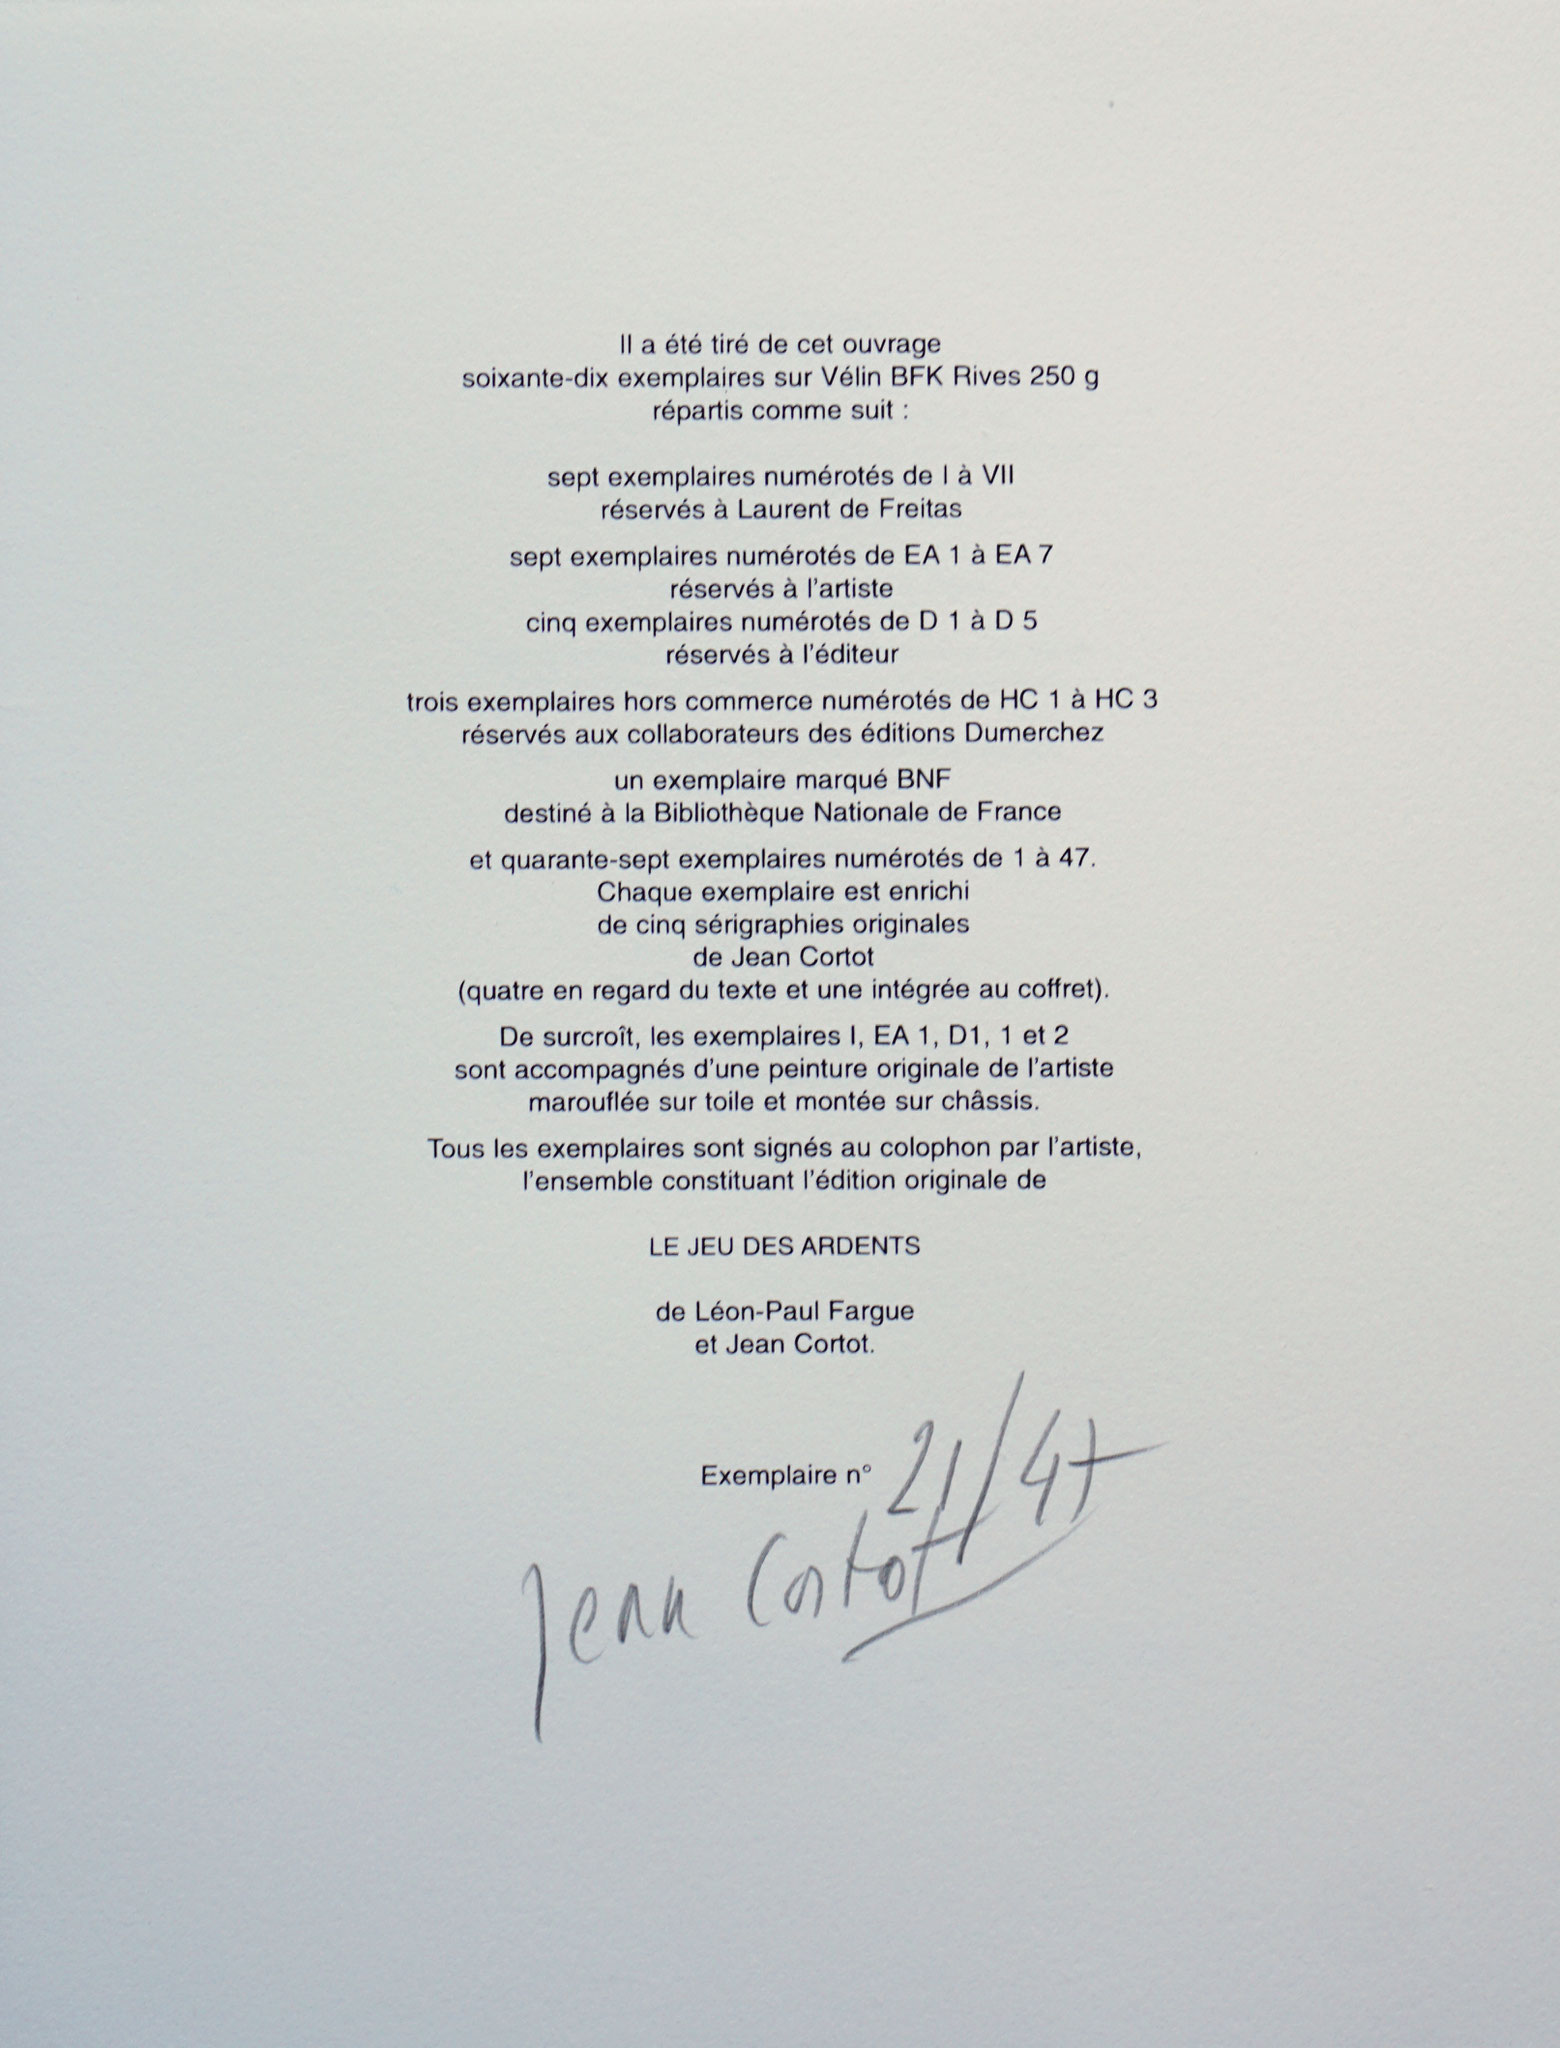 Il a été tiré de cet ouvrage
soixante-dix exemplaires sur Vélin BFK Rives 250 g
répartis comme suit :
sept exemplaires numérotés de I à VII
réservés à Laurent de Freitas
sept exemplaires numérotés de EA 1 à EA 7
réservés à l'artiste
cinq exemplaires numérotés de D 1 à D 5
réservés à l'éditeur
trois exemplaires hors commerce numérotés de HC 1 à HC 3
réservés aux collaborateurs des éditions Dumerchez
un exemplaire marqué BNF
destiné à la Bibliothèque Nationale de France
et quarante-sept exemplaires numérotés de 1 à 47.
Chaque exemplaire est enrichi
de cinq sérigraphies originales
de Jean Cortot
(quatre en regard du texte et une intégrée au coffret).
De surcroît, les exemplaires I, EA 1, D1, 1 et 2
sont accompagnés d'une peinture originale de l'artiste
marouflée sur toile et montée sur châssis.
Tous les exemplaires sont signés au colophon par l'artiste,
l'ensemble constituant l'édition originale de
LE JEU DES ARDENTS
de Léon-Paul Fargue
et Jean Cortot.
Exemplaire n° 21/47
Jean Cortot